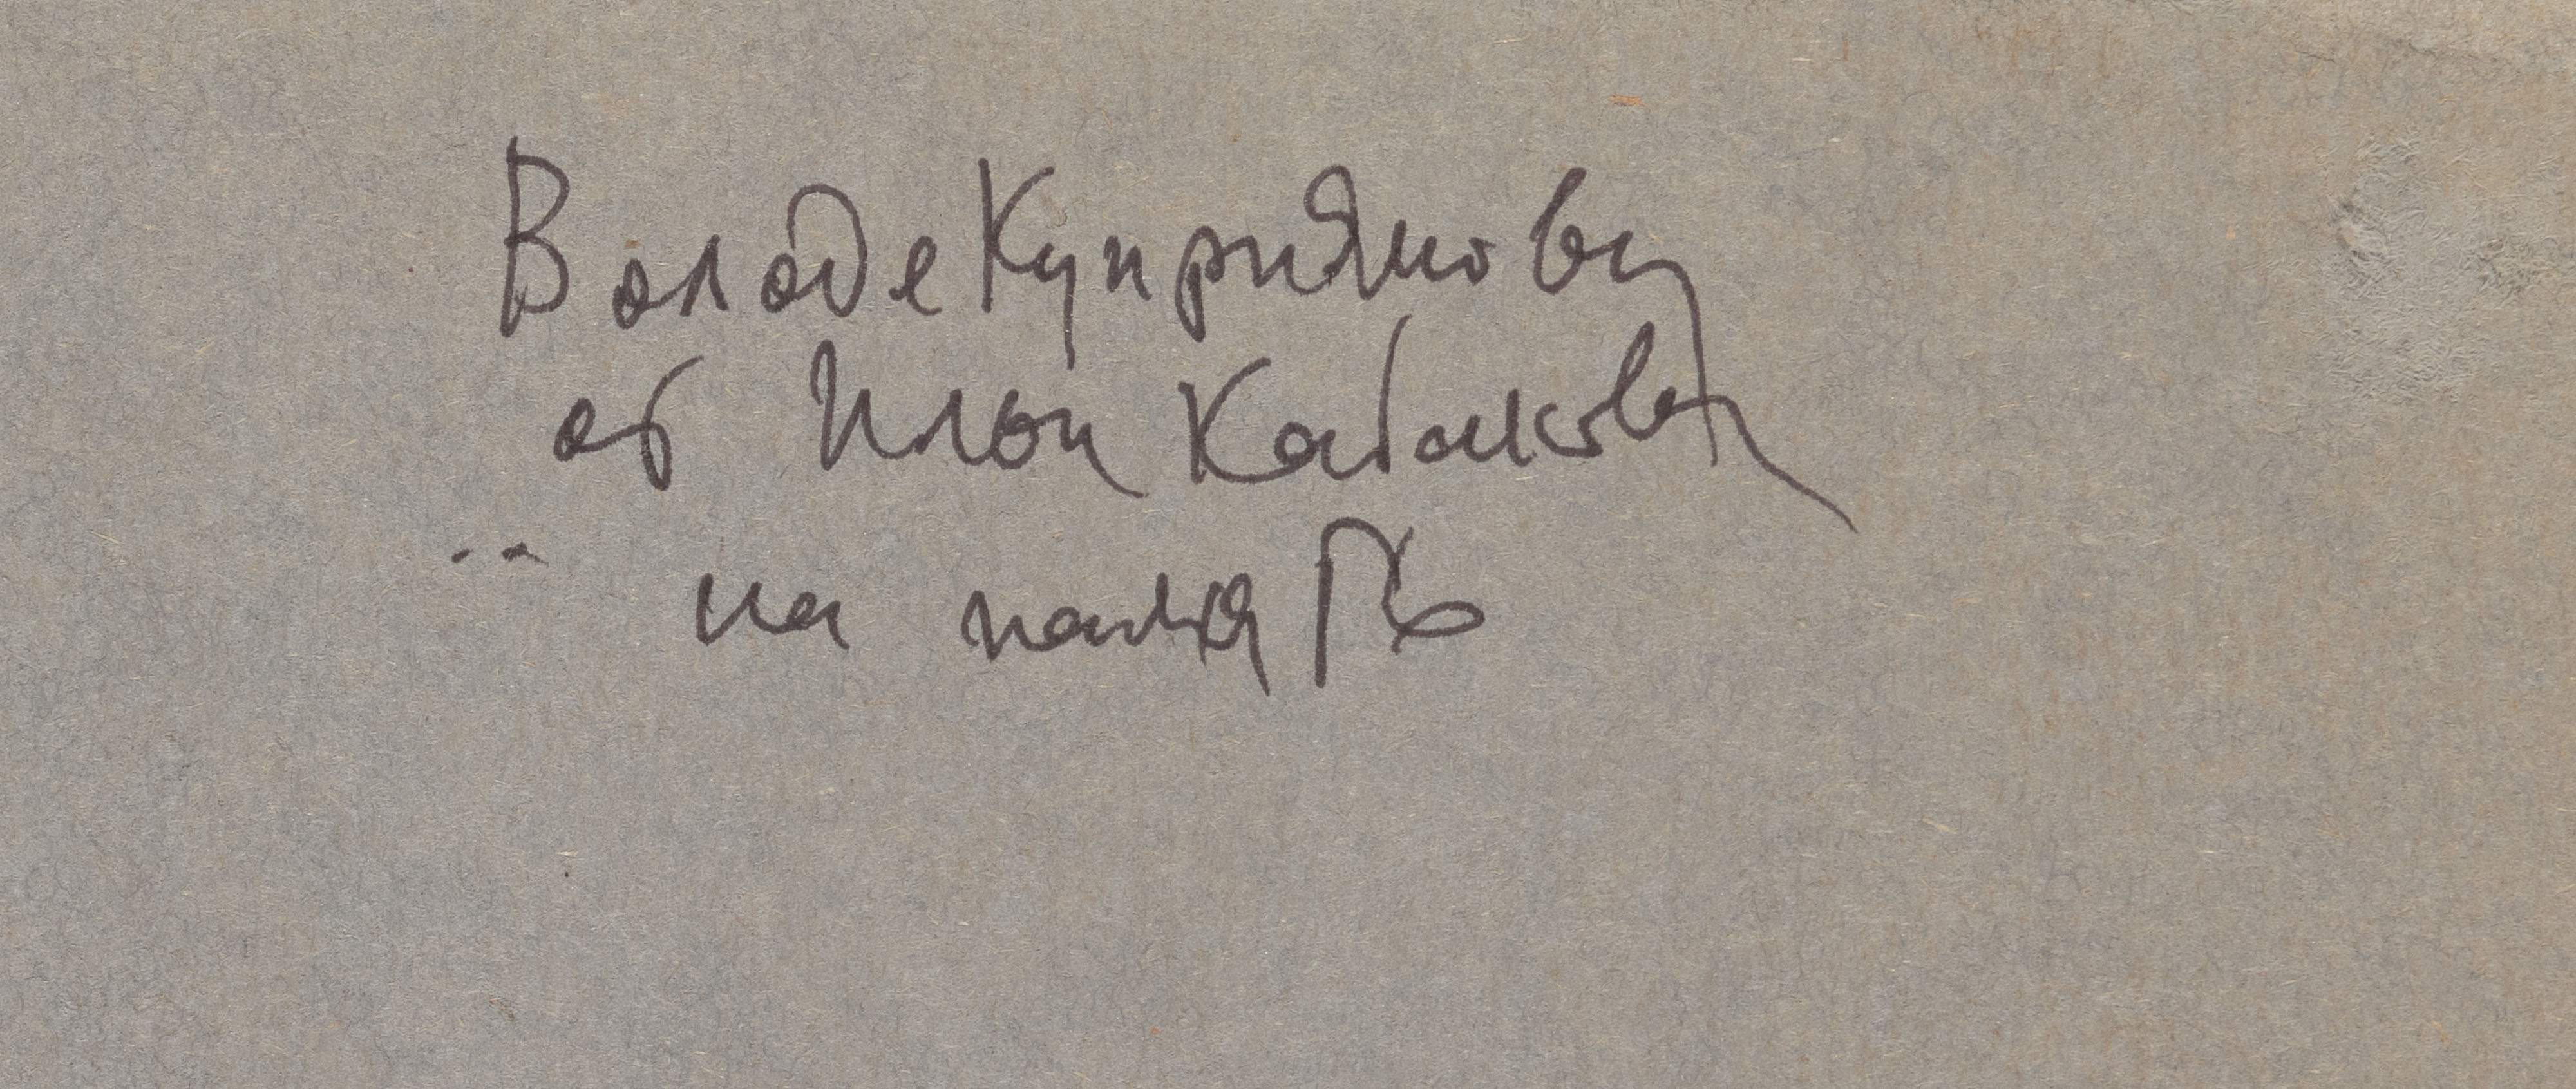 Володе Куприянову
от Ильи Кабакова
на память